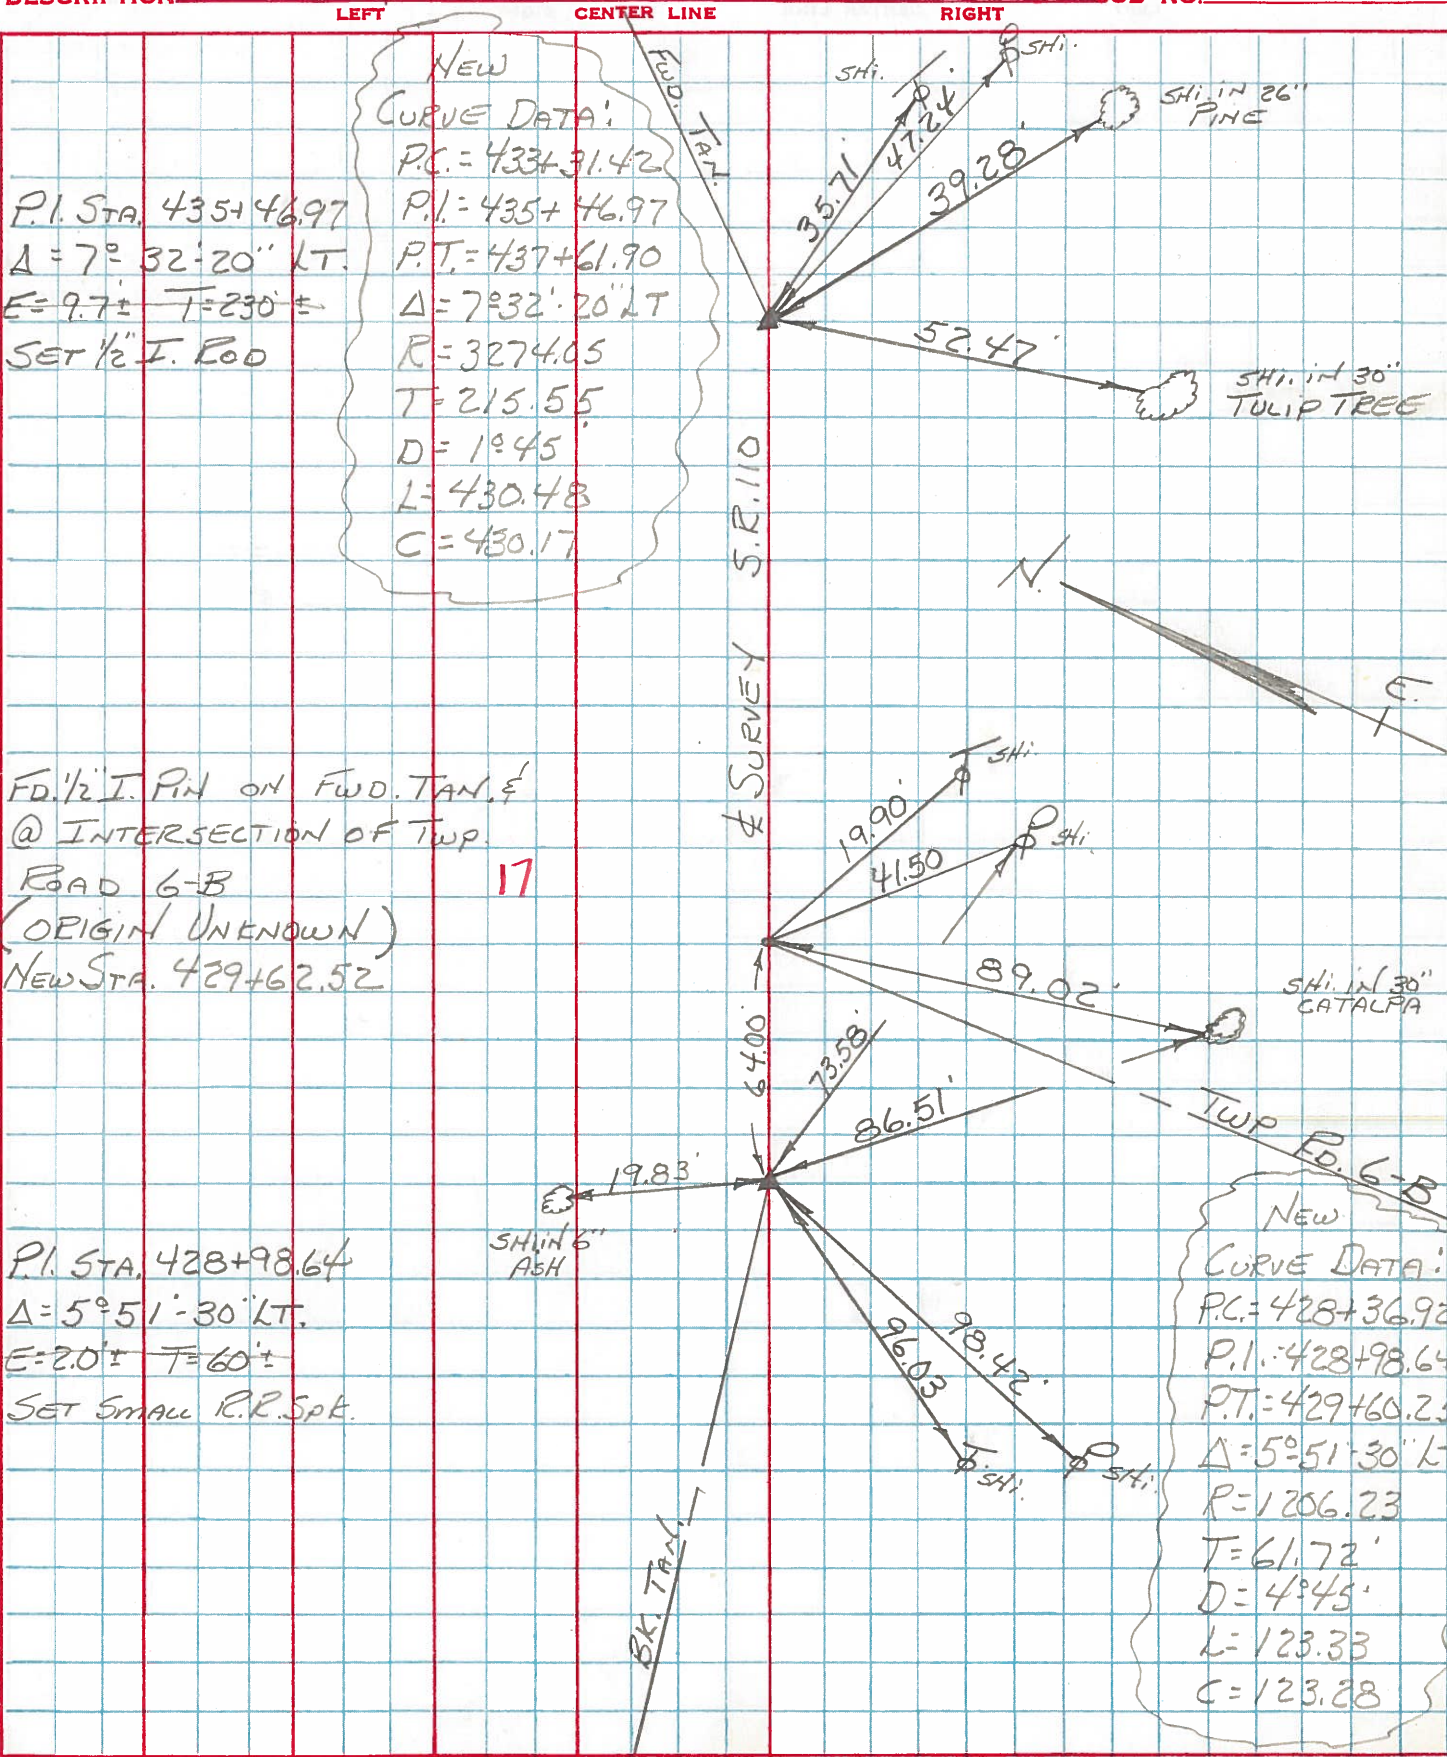 LEFT
CENTER LINE
RIGHT
NEW
CURVE DATA:
P.C. = 433+31.42
P.I. = 435+46.97
P.T. = 437+61.90
Δ = 7°32'-20" LT
R = 3274.05
T = 215.55
D = 1°45'
L = 430.48
C = 430.17
P.I. STA. 435+46.97
Δ = 7° 32'-20" LT.
E = 9.7'± T = 230'±
SET 1/2" I. ROD
FWD. TAN.
SHI.
SHI.
35.71'
47.24'
39.28'
SHI. IN 26"
PINE
52.47'
SHI. IN 30"
TULIP TREE
℄ SURVEY S.R. 110
N.
E.
FD. 1/2" I. PIN ON FWD. TAN. &
@ INTERSECTION OF TWP.
ROAD 6-B
(ORIGIN UNKNOWN)
NEW STA. 429+62.52
17
SHI.
19.90'
41.50
SHI.
89.02'
SHI. IN 30"
CATALPA
64.00'
73.58'
86.51'
TWP RD. 6-B
19.83'
SHI. IN 6"
ASH
P.I. STA. 428+98.64
Δ = 5°51'-30" LT.
E = 2.0'± T = 60'±
SET SMALL R.R. SPK.
96.03
98.42'
SHI.
SHI.
BK. TAN.
NEW
CURVE DATA:
P.C. = 428+36.92
P.I. = 428+98.64
P.T. = 429+60.25
Δ = 5°51'-30" L
R = 1206.23
T = 61.72'
D = 4°45'
L = 123.33
C = 123.28